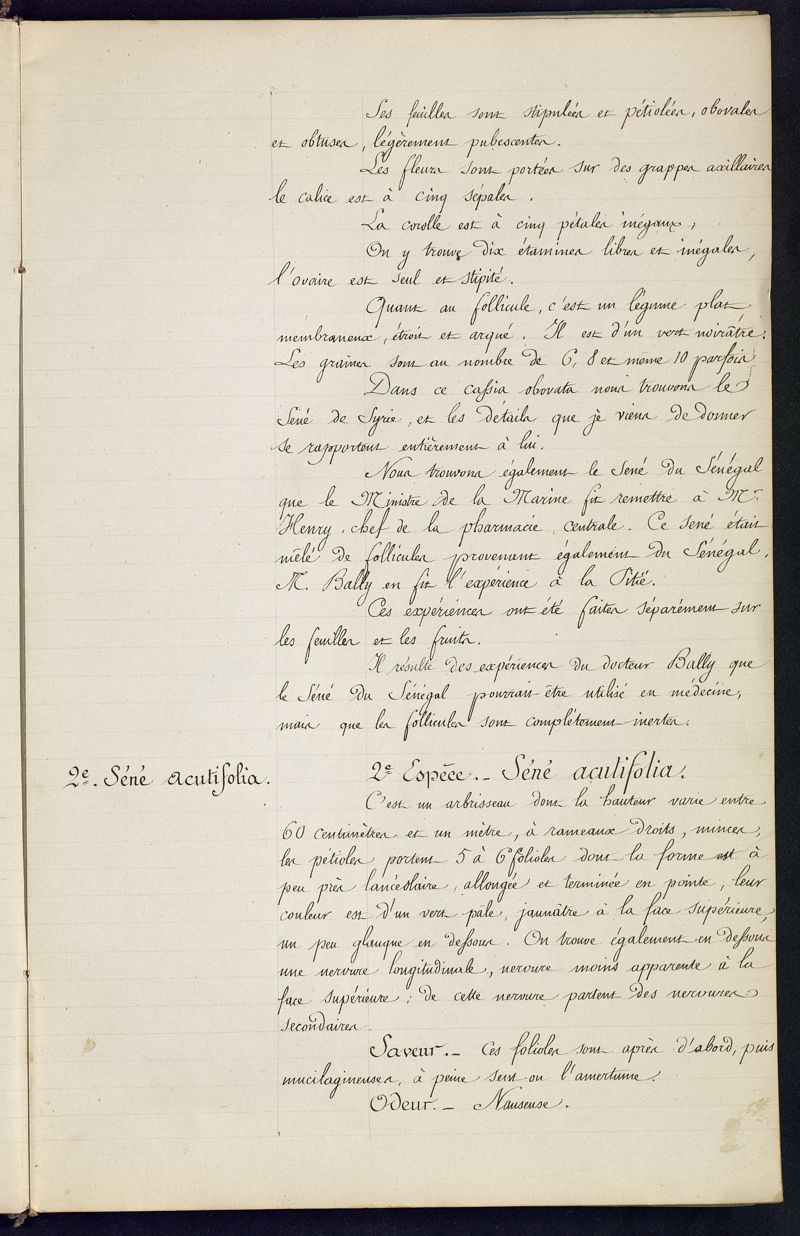 Ses feuilles sont stipulées et pétiolées, obovales
et obtuses, légèrement pubescentes.
Les fleurs sont portées sur des grappes axillaires
le calice est à cinq sépales.
La corolle est à cinq pétales inégaux,
On y trouve dix étamines libres et inégales,
l'ovaire est seul et stipité.
Quant au follicule, c'est un légume plat
membraneux, étroit et arqué. Il est d'un vert noirâtre.
Les graines sont au nombre de 6, 8 et même 10 parfois
Dans ce cassia obovata nous trouvons le
Séné de Syrie, et les détails que je viens de donner
se rapportent entièrement à lui.
Nous trouvons également le Séné du Sénégal
que le Ministre de la Marine fit remettre à Mr.
Henry, chef de la pharmacie centrale. Ce séné était
mêlé de follicules provenant également du Sénégal.
M. Bally en fit l'expérience à la Pitié.
Ces expériences ont été faites séparément sur
les feuilles et les fruits.
Il résulte des expériences du docteur Bally que
le Séné du Sénégal pourrait être utilisé en médecine,
mais que les follicules sont complètement inertes.
2e. Séné acutifolia.
2e Espèce. - Séné acutifolia.
C'est un arbrisseau dont la hauteur varie entre
60 centimètres et un mètre, à rameaux droits, minces,
les pétioles portent 5 à 6 folioles dont la forme est à
peu près lancéolaire, allongée et terminée en pointe, leur
couleur est d'un vert pâle, jaunâtre à la face supérieure,
un peu glauque en dessous. On trouve également en dessous
une nervure longitudinale, nervure moins apparente à la
face supérieure; de cette nervure partent des nervures
secondaires.
Saveur. - Ces folioles sont après d'abord, puis
mucilagineuses, à peine sent on l'amertume.
Odeur. - Nauseuse.